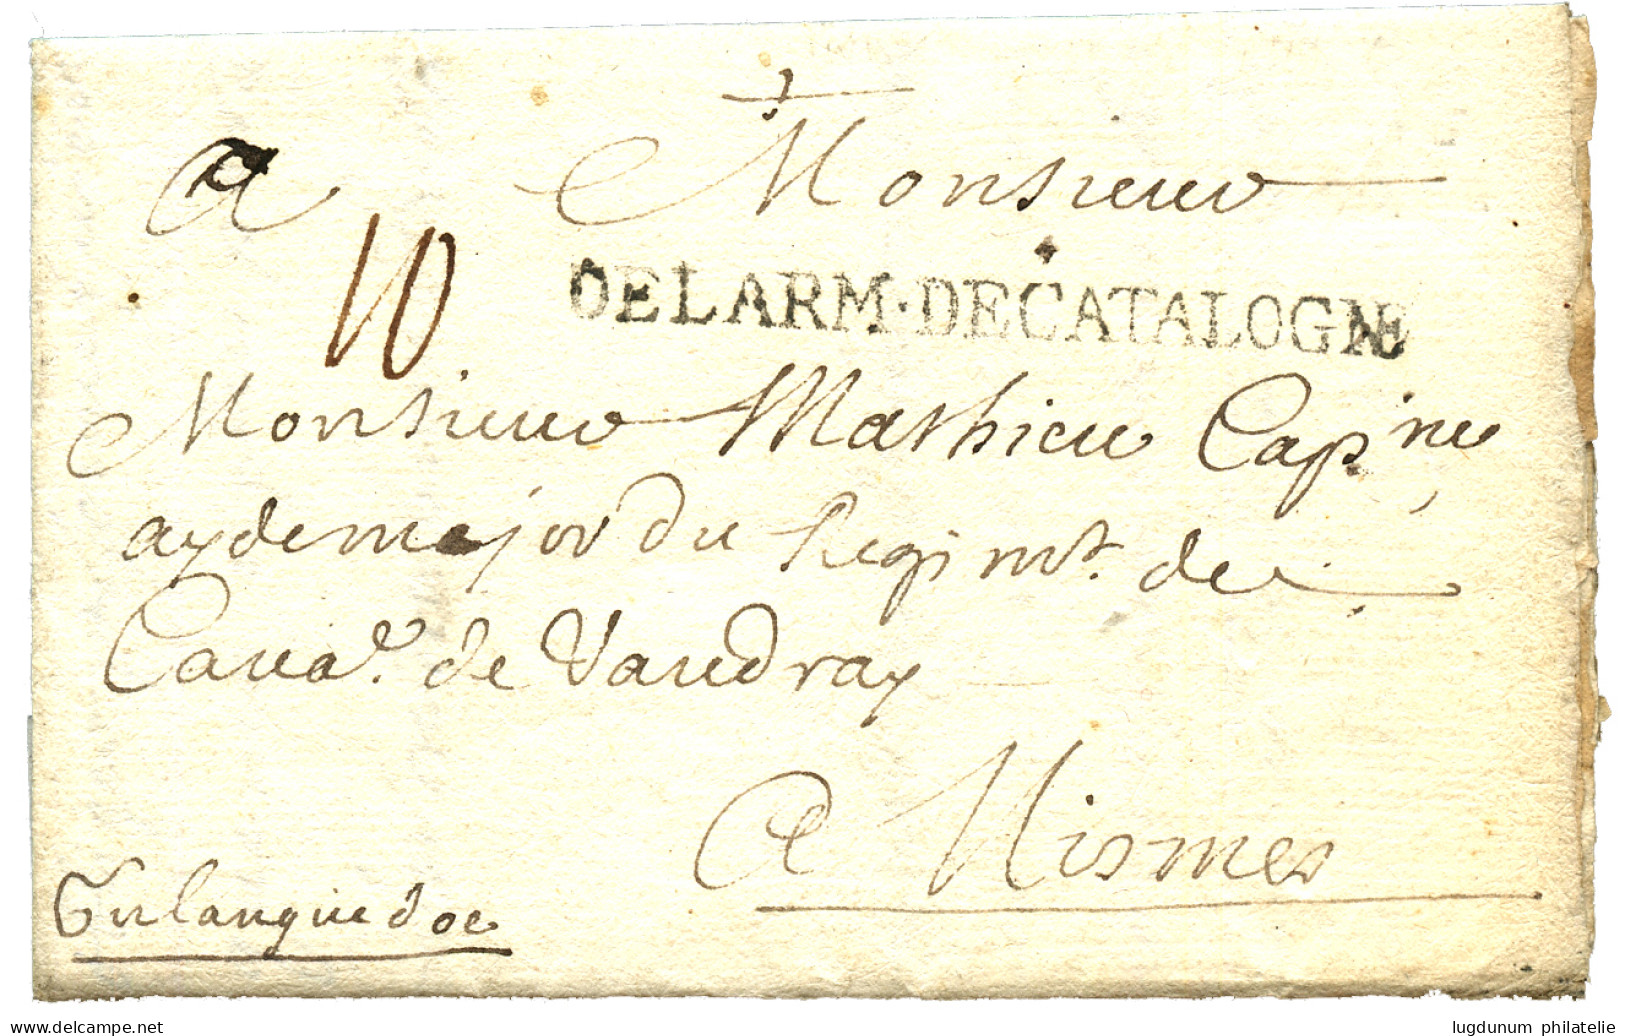 A Monsieur
10
DELARM·DECATALOGNE
Monsieur Mathieu Cap.ne
aydemajor du Regimt. de
Caual.e de Vaudray
A Nismes
En languedoc
www.delcampe.net
lugdunum philatelie